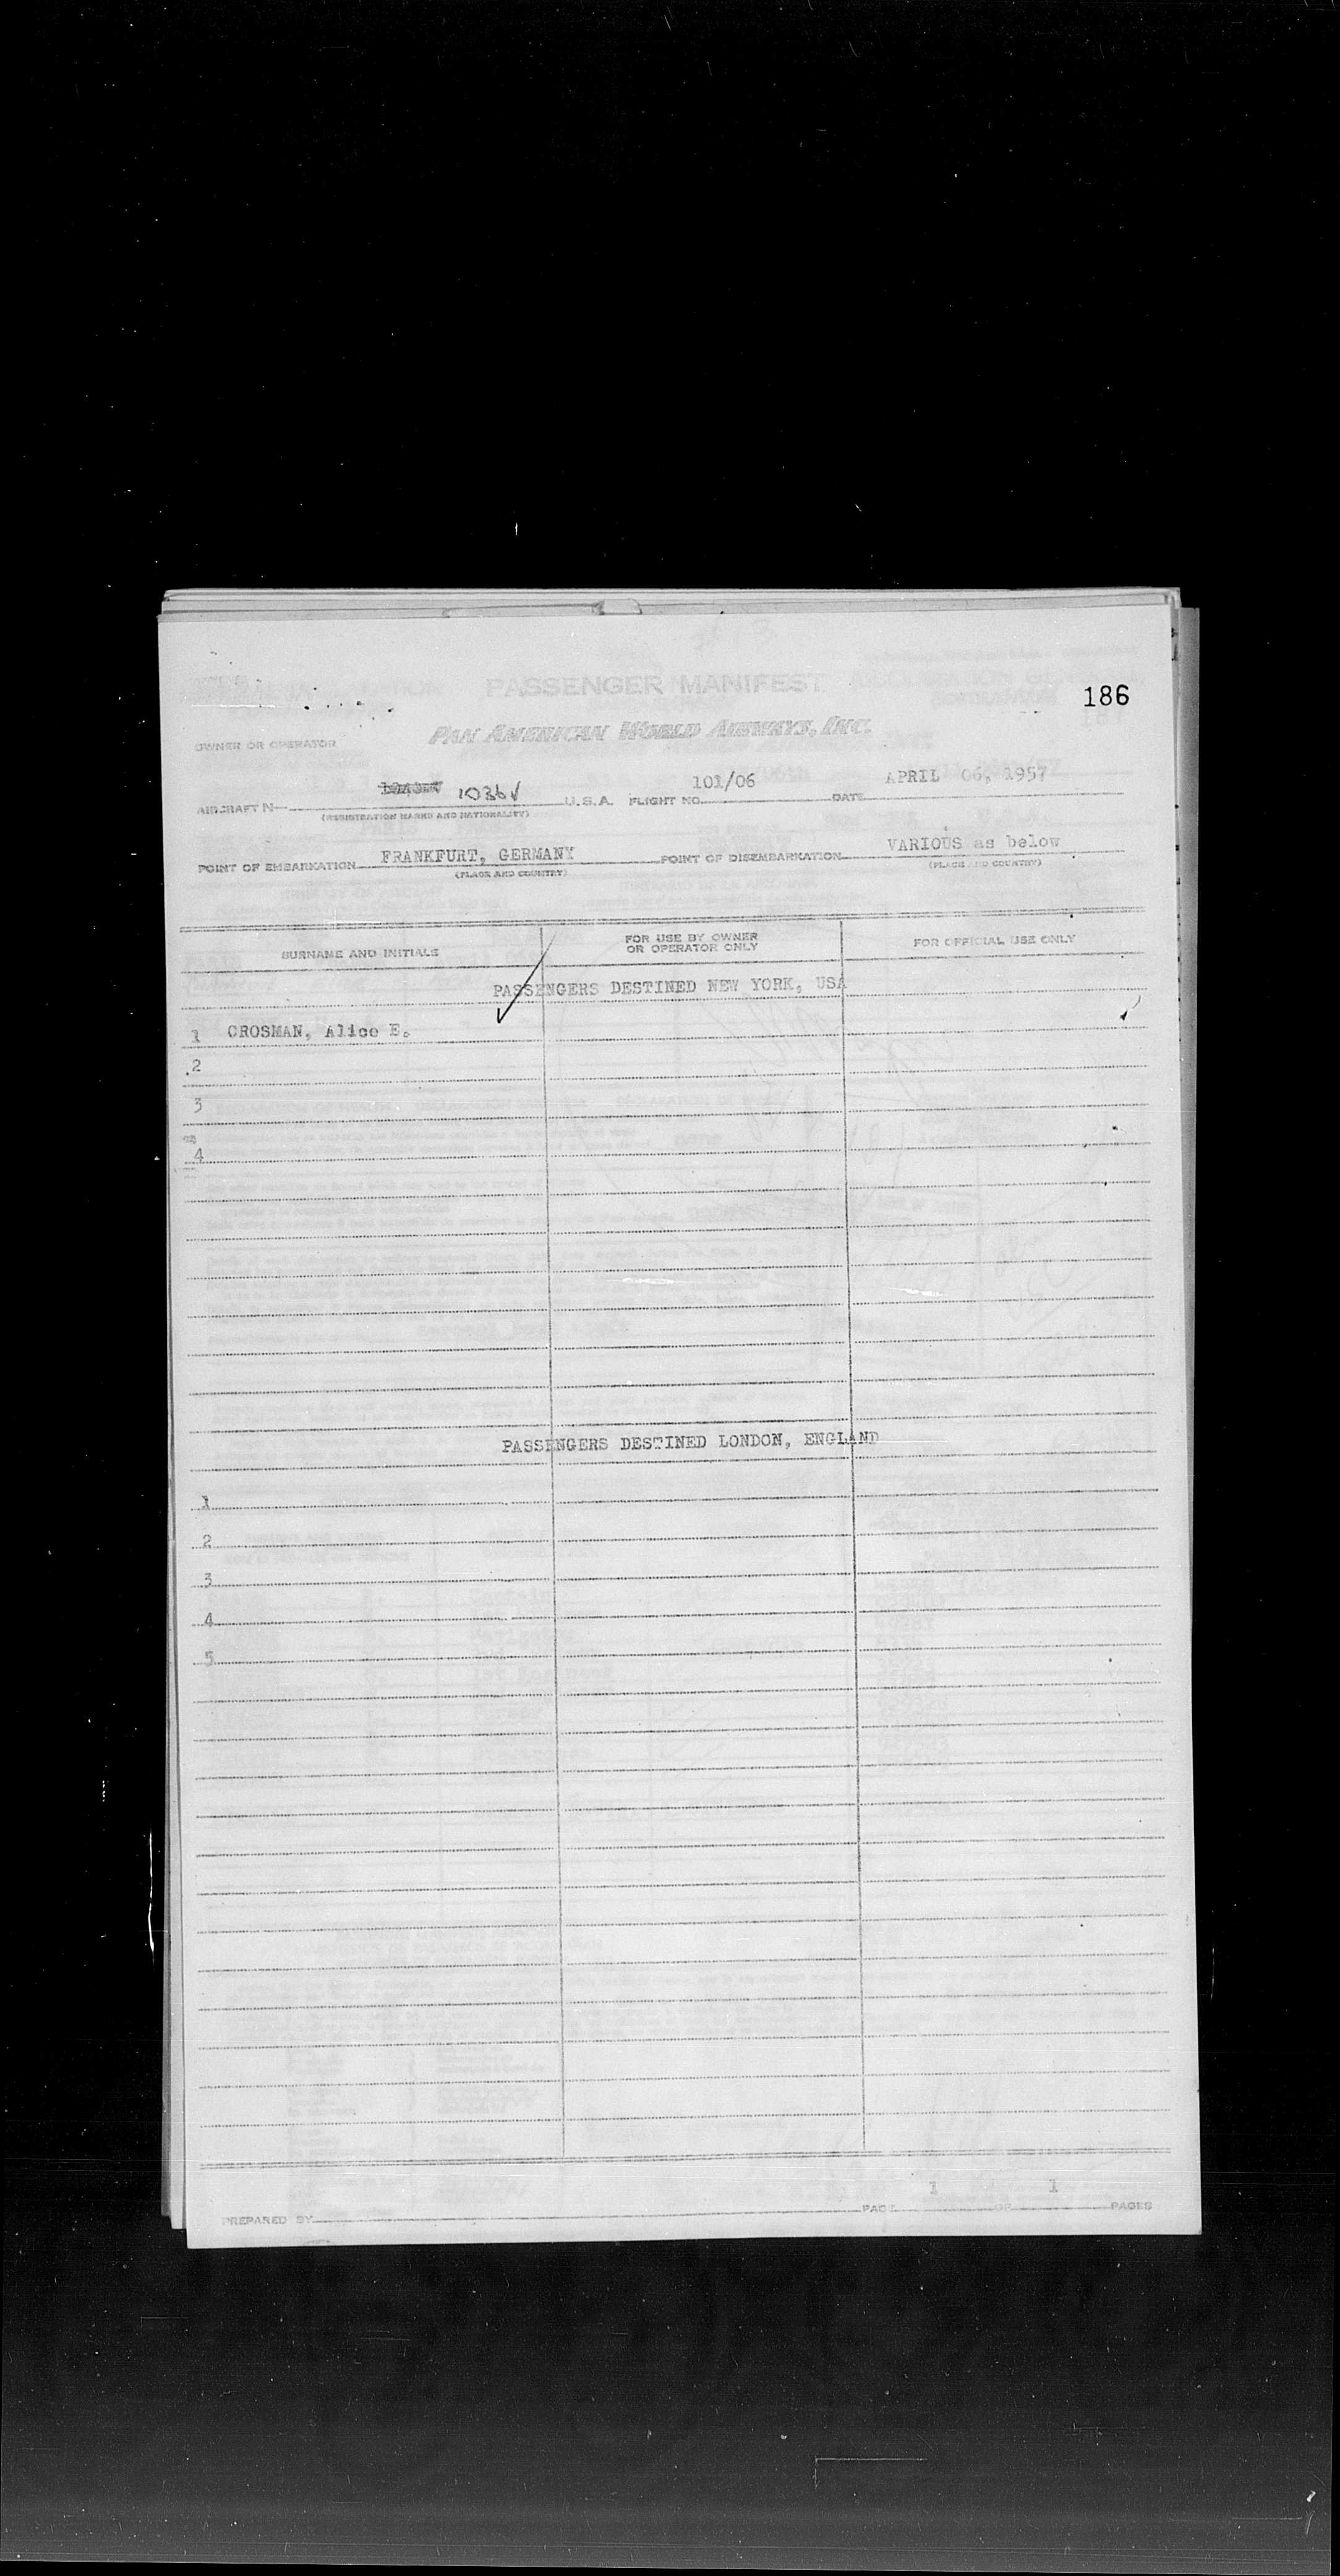 PASSENGER MANIFEST
186
PAN AMERICAN WORLD AIRWAYS, INC.
OWNER OR OPERATOR
AIRCRAFT N 1036V U.S.A. FLIGHT NO. 101/06 DATE APRIL 06, 1957
(REGISTRATION MARKS AND NATIONALITY)
POINT OF EMBARKATION FRANKFURT, GERMANY POINT OF DISEMBARKATION VARIOUS as below
(PLACE AND COUNTRY) (PLACE AND COUNTRY)
SURNAME AND INITIALS FOR USE BY OWNER OR OPERATOR ONLY FOR OFFICIAL USE ONLY
PASSENGERS DESTINED NEW YORK, USA
1 CROSMAN, Alice E.
2
3
4
PASSENGERS DESTINED LONDON, ENGLAND
1
2
3
4
5
PREPARED BY PAGE 1 OF 1 PAGES